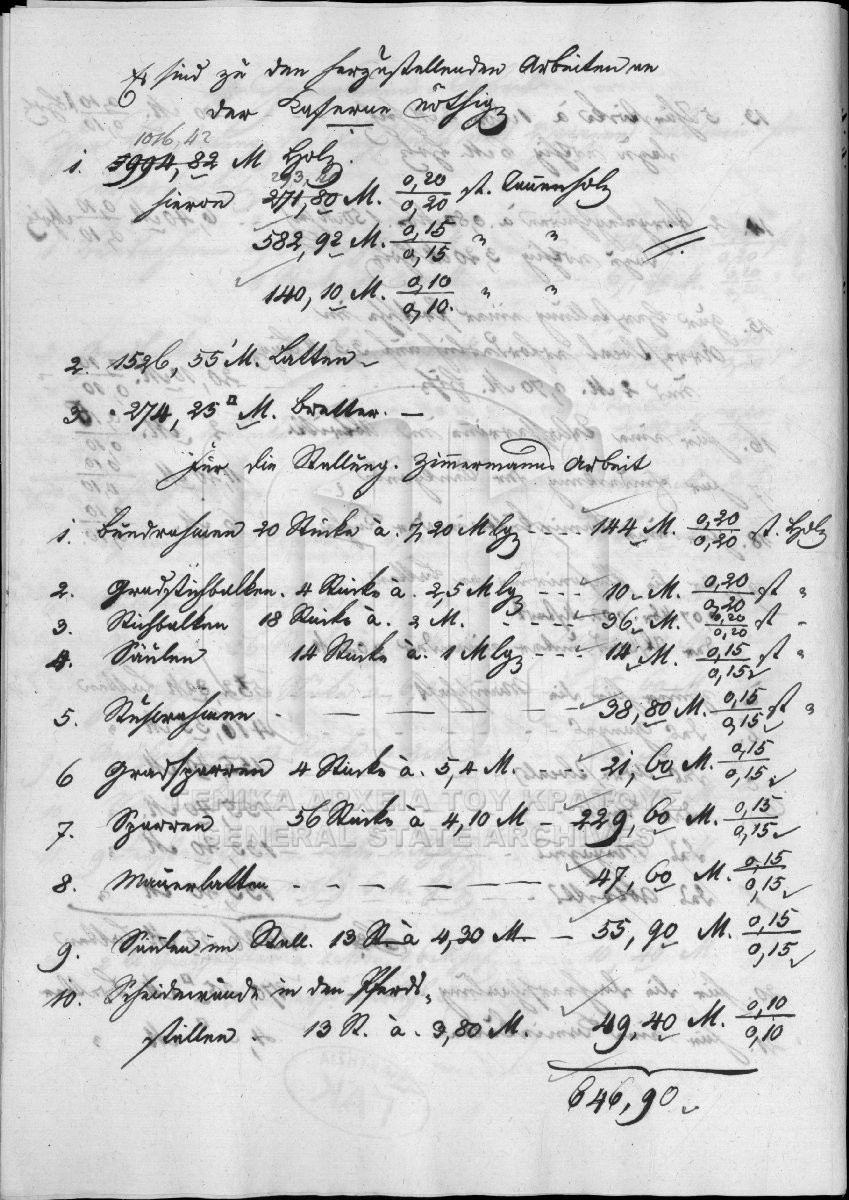 Es sind zu den herzustellenden Arbeiten an
der Caserne nöthig
1016,42
1. 3994,82 M Holz.
hievon 271,80 M. 0,20/0,20 st. Tannenholz
582,92 M. 0,15/0,15 " "
140,10 M. 0,10/0,10. " "
2. 1526,55 M. Latten
3. 274,25 □ M. Bretter. —
Für die Stallung. Zimmermanns Arbeit
1. Bundrahmen 20 Stücke à. 7,20 M lg - - - - 144 M. 0,20/0,20 st. Holz
2. Gradstichbalken. 4 Stücke à. 2,5 M lg - - - 10 M. 0,20/0,20 st "
3. Stichbalken 18 Stücke à. 2 M. - - - - 36 M. 0,20/0,20 st "
4. Säulen 14 Stücke à. 1 M lg - - - 14 M. 0,15/0,15 st "
5. Stuhlrahmen - — — — — - - 38,80 M. 0,15/0,15 st "
6 Gradsparren 4 Stücke à. 5,4 M. - - - 21,60 M. 0,15/0,15
7. Sparren 56 Stücke à 4,10 M — 229,60 M. 0,15/0,15
8. Mauerlatten - - — - — — — 47,60 M. 0,15/0,15
9. Säulen im Stall. 13 St. à 4,30 M. — 55,90 M. 0,15/0,15
10. Scheidewände in den Pferds-
ställen 13 St. à. 3,80 M. 49,40 M. 0,10/0,10
646,90
ΓΕΝΙΚΑ ΑΡΧΕΙΑ ΤΟΥ ΚΡΑΤΟΥΣ
GENERAL STATE ARCHIVES